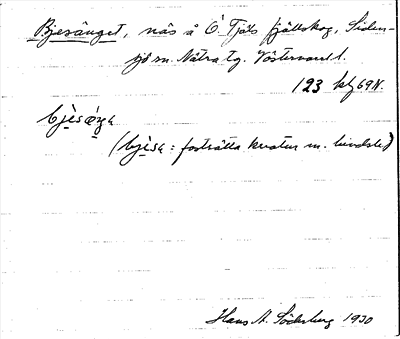 Bjesänget, näs å Ö. Tjäls fjällskog, Siden-
sjö sn. Nätra tg. Västernorrl.
123 kbl 69 N.
bjèsǽŋa
(bjèsa: forsrätta kreatur m.
Hans A. Söderberg 1930